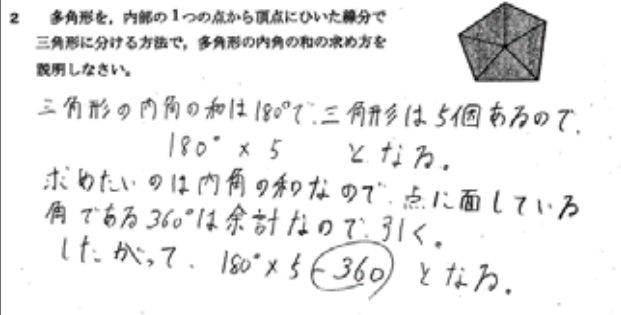 2 多角形を，内部の1つの点から頂点にひいた線分で
三角形に分ける方法で，多角形の内角の和の求め方を
説明しなさい。
三角形の内角の和は180°で、三角形は5個あるので、
180° × 5 となる。
求めたいのは内角の和なので、点に面している
角である360°は余計なので、引く。
したがって、180°×5-360 となる。